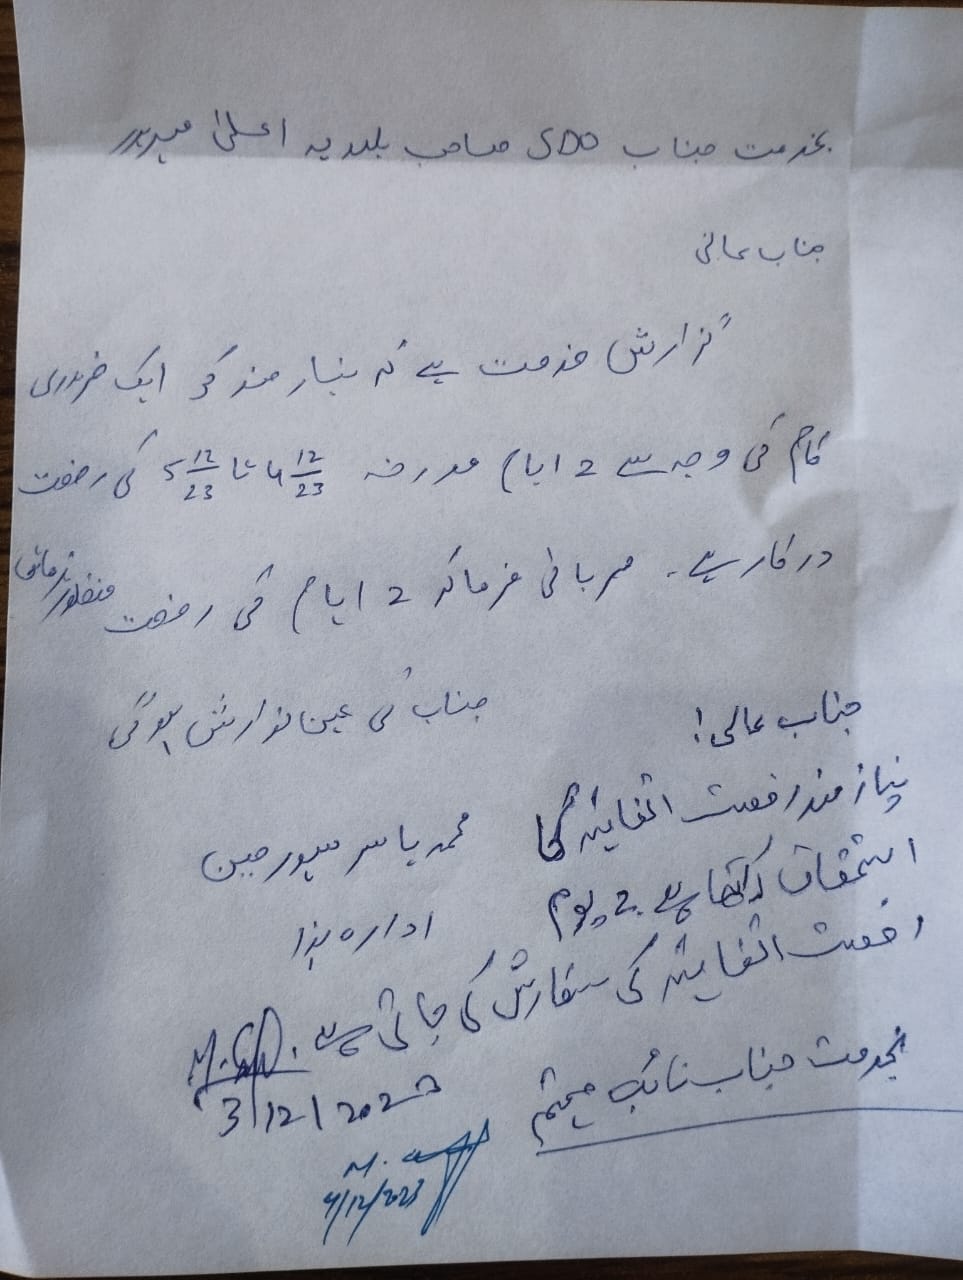 بخدمت جناب SDO صاحب بلدیہ اعلیٰ میرپور
جناب عالی
گزارش خدمت ہے کہ نیاز مند کو ایک ضروری
کام کی وجہ سے 2 ایام مورخہ 4 12/23 تا 5 12/23 کی رخصت
درکار ہے۔ مہربانی فرما کر 2 ایام کی رخصت منظور فرمائی
جناب کی عین نوازش ہوگی
محمد یاسر سیورمین
ادارہ ہذا
جناب عالی!
نیاز مند رخصت اتفاقیہ کا
استحقاق رکھتا ہے۔ 2 یوم
رخصت اتفاقیہ کی سفارش کی جاتی ہے۔
3/12/2023
بخدمت جناب نائب مہتمم
4/12/2023